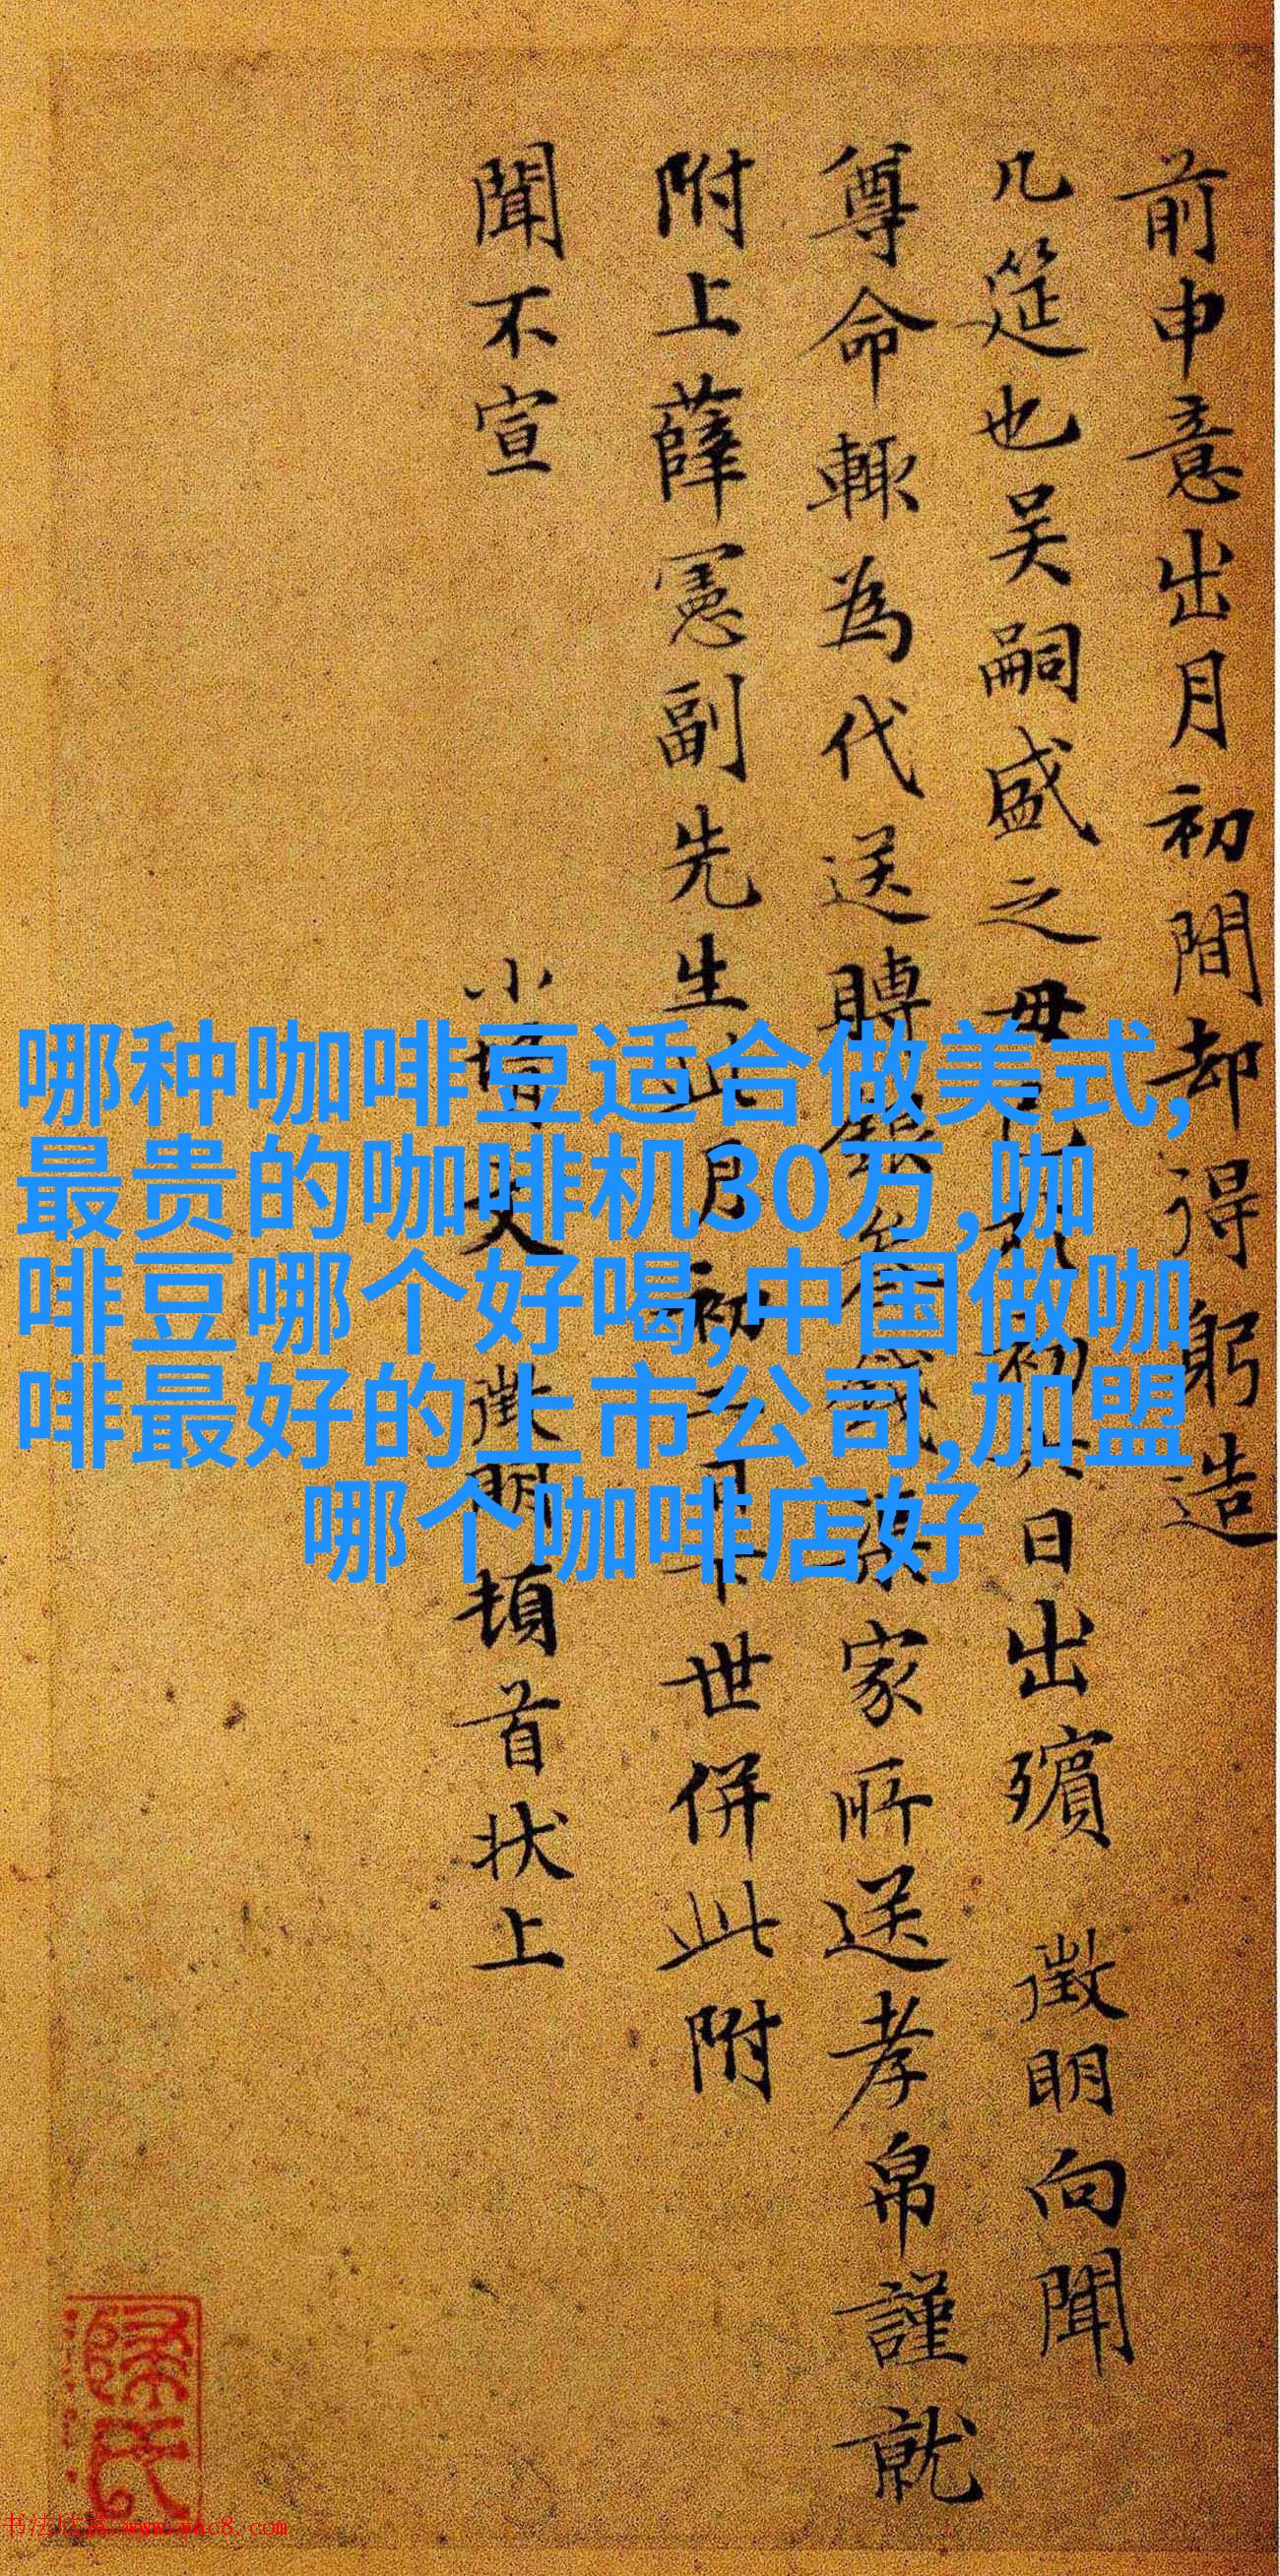 前申意出月初間却得躬造
几筵也吴嗣盛之毋
日出殯 徴明向聞
尊命輙為代送
家所送孝帛謹就
附上薛憲副先生
世併此附
聞不宣
頓首状上
哪种咖啡豆适合做美式,
最贵的咖啡机30万,咖
啡豆哪个好喝,中国做咖
啡最好的上市公司,加盟
哪个咖啡店好
书法欣赏 www.yac8.com